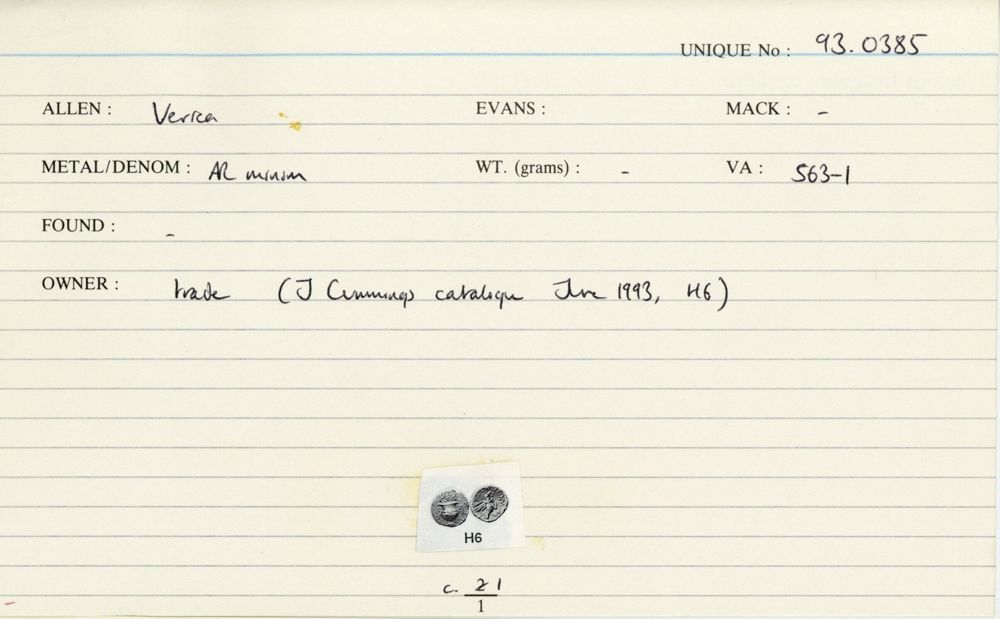 UNIQUE No : 93.0385
ALLEN : Verica EVANS : MACK : -
METAL/DENOM : AR minim WT. (grams) : - VA : 563-1
FOUND : -
OWNER : trade (J Cummings catalogue June 1993, H6)
H6
c. 2 1
1